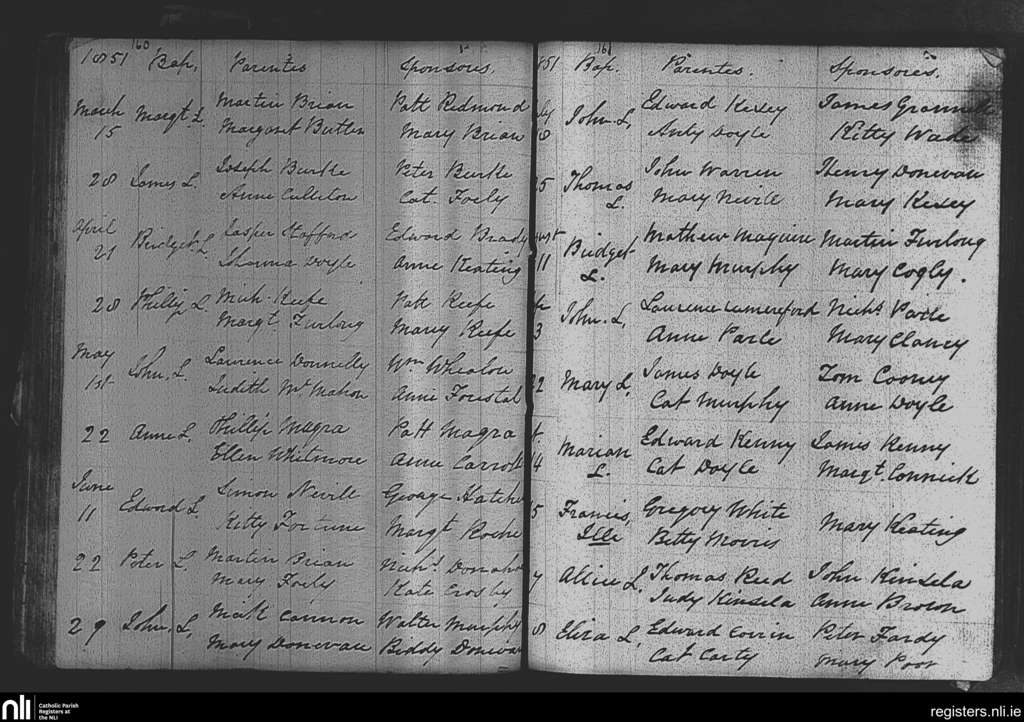 160
1851 Bap. Parentes Sponsores.
March 15 Margt. L. Martin Brian Patt Redmond
Margaret Butler Mary Brian
28 James L. Joseph Burke Peter Burke
Anne Culleton Cat. Foely
April 21 Bridget L. Jasper Stafford Edward Brady
Johanna Doyle Anne Keating
28 Phillip L. Mich. Keefe Patt Keefe
Margt. Furlong Mary Keefe
May 1st John L. Laurence Donnelly Wm. Whealon
Judith Mc Mahon Anne Forestal
22 Anne L. Phillip Magra Patt Magra
Ellen Whitmore Anne Carroll
June 11 Edward L. Simon Nevill George Hatche
Kitty Fortune Margt Roche
22 Peter L. Martin Brian Richd. Donaho
Mary Foely Kate Crosby
29 John L. Matt Cannon Walter Murphy
Mary Donevan Biddy Donivan
161
851 Bap. Parentes. Sponsores.
ly John L. Edward Kexey James
Anty Doyle Kitty Wade
25 Thomas L. John Warren Henry Donevan
Mary Nevill Mary Kexey
ust 11 Bridget L. Mathew Maguire Martin Furlong
Mary Murphy Mary Cogly.
3 John L. Laurence Cumereford Nichs. Parle
Anne Parle Mary Clancy
22 Mary L. James Doyle Tom Cooney
Cat Murphy Anne Doyle
14 Marian L. Edward Kenny James Kenny
Cat Doyle Margt. Connick
5 Francis, Ille Gregory White Mary Keating
Betty Morris
7 Allice L. Thomas Reed John Kinsela
Judy Kinsela Anne Brown
8 Eliza L. Edward Corrin Peter Fardy
Cat Carty Mary Poor
nli Catholic Parish
Registers at
the NLI
registers.nli.ie